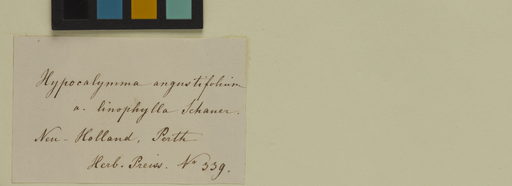 Hypocalymma angustifolium
a. linophylla Schauer.
Neu-Holland, Perth
Herb. Preiss. No 339.